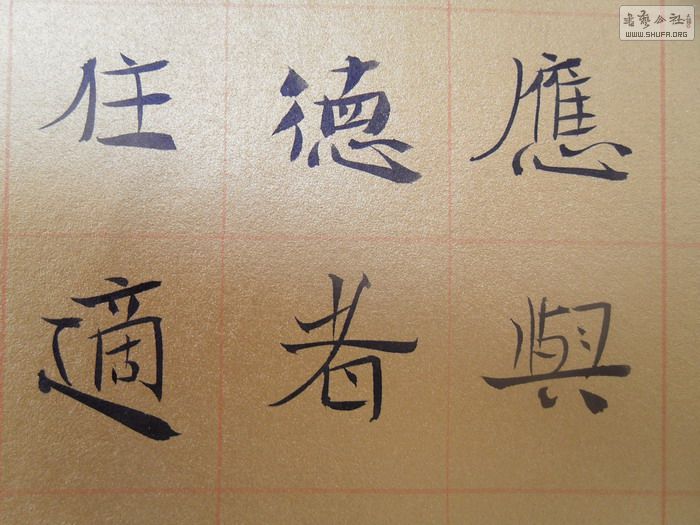 應與
德者
住適
書藝公社
WWW.SHUFA.ORG